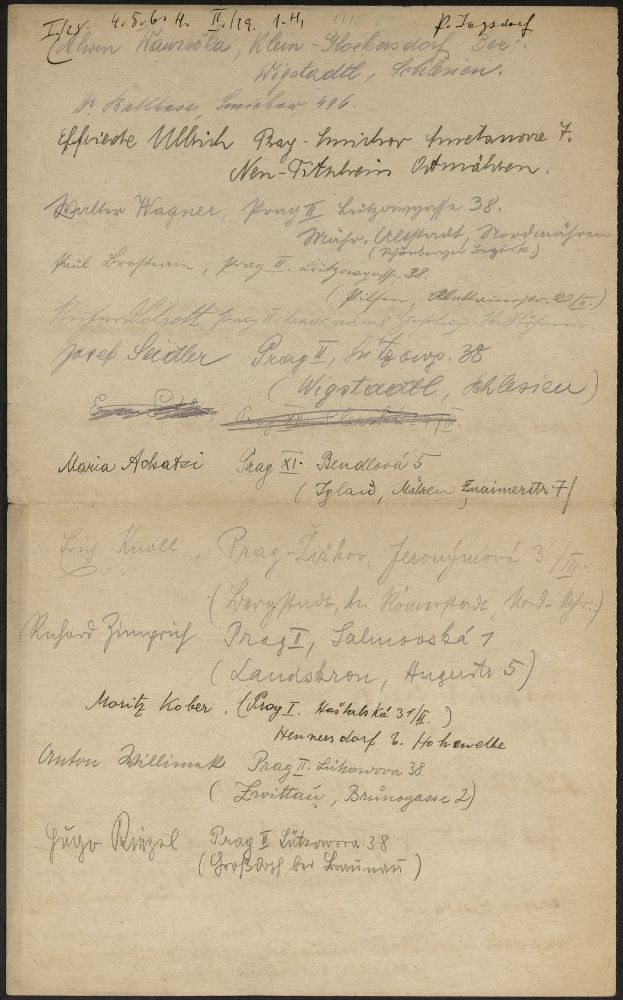 I/28. 4. 5. 6. H. II./29. 1. H. P. Jagsdorf
(Alwin Klein-Glockersdorf Bez:
Wigstadtl, Schlesien.
Dr. Balthasar, Smichow 496.
Elfriede Ullrich Prag-Smichow Smetanova 7.
Neu-Titschein Ostmähren.
Walter Wagner, Prag II Lützowgasse 38.
Mähr. Altstadt, Nordmähren
(Schönberger Bezirk.)
Paul , Prag II. Lützowgasse 38.
(Pilsen, 20/II.)
Prag II.
Josef Seidler Prag II, Lützowg. 38
(Wigstadtl, Schlesien)
Prag XII
Maria Adsatzi Prag XI. Bendlová 5
(Iglau, Mähren Znaimerstr. 7)
Erich Knoll, Prag-Žižkov, Jeronýmová 3./III.
(Bergstadt, bei Römerstadt, Nord-Mhr.)
Richard Zimprich Prag II, Salmovská 1
(Landskron, Angerstr 5)
Moritz Kober. (Prag I. Haštalská 31/II.)
Hennersdorf b. Hohenelbe
Anton Willimek Prag II. Lützowova 38
(Zwittau, Brünogasse 2)
Hugo Prag II Lützowova 38
(Großdorf bei Braunau)